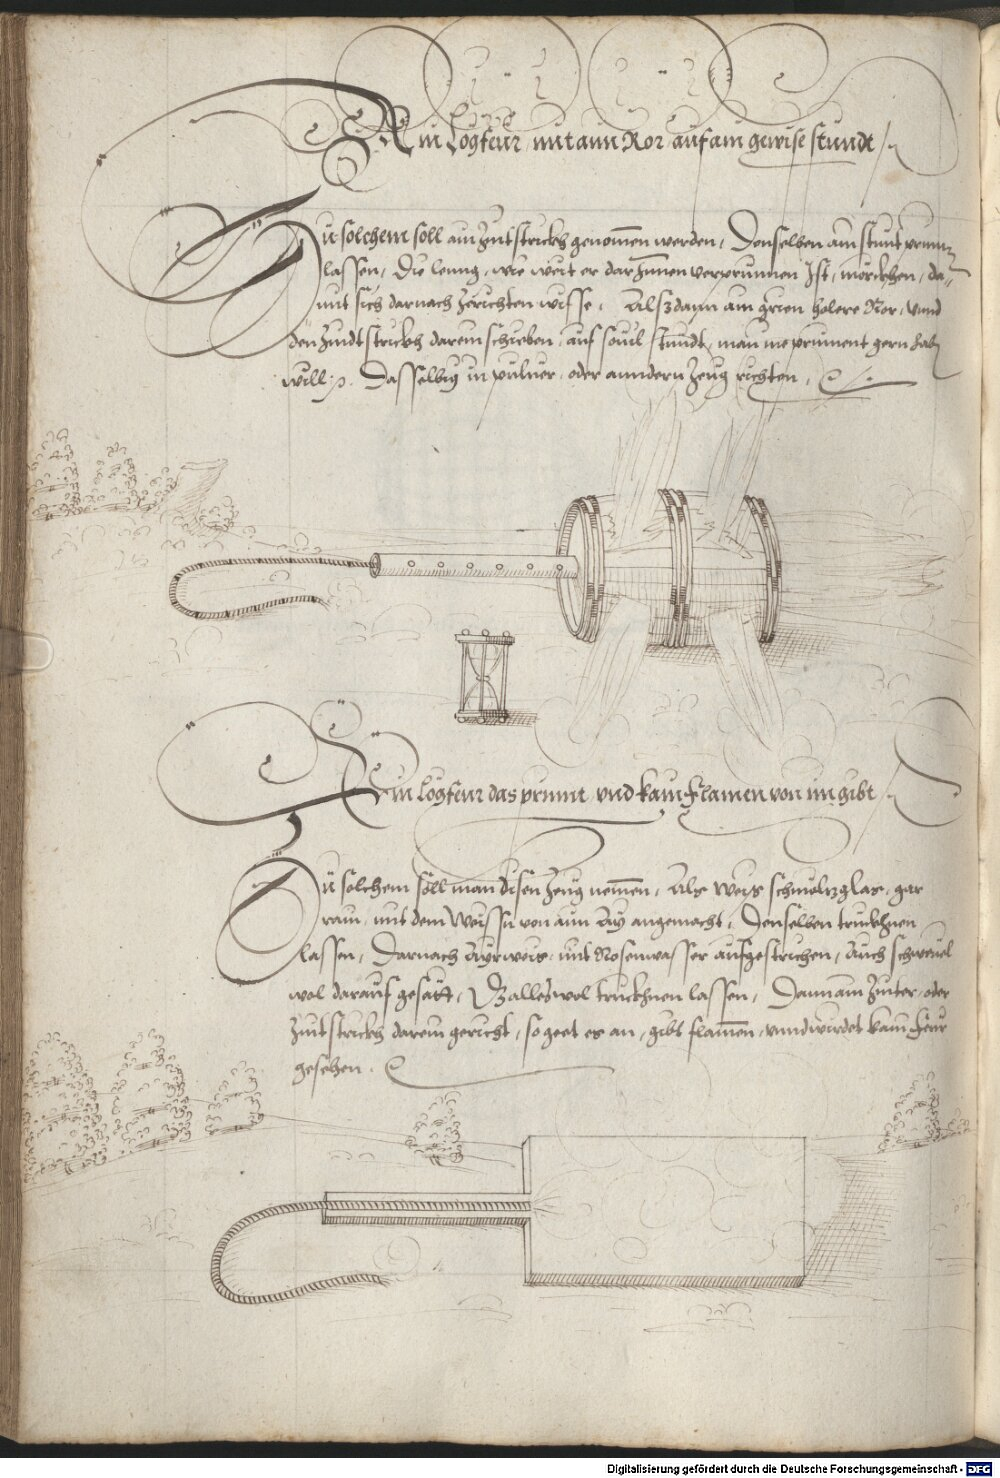 Ain Logfeur mit aim Ror auf ain gewise stundt /.
Zu solchem soll ain Zintstrickh genomen werden, Denselben ain stunt prinnen
lassen, Die leung, wie weit er dar Innen verprunnen Ist, mörckhen, da-
mit sich darnach zerichten wisse. Alsdann ain grien holere Ror, vnnd
den Zindtstrickh darein schieben, auf souil stundt, man ine prinnent gern hab
will: Dasselbig in puluer, oder anndern Zeug richten.
Ain Logfeur das print vnd kain Flamen von im gibt /.
Zu solchem soll man disen Zeug nemen, Als weis schmeltzglas, gar
rain, mit dem Weissn von aim Ay angemacht, Denselben truckhnen
lassen, Darnach Ayrweis, mit Rosenwasser aufgestrichen, Auch schweuel
wol darauf gesätt, Alles wol truckhnen lassen, Dann ain Zinter, oder
Zintstrickh darein gericht, so geet es an, gibt flamen, vnnd wirdet kain feur
gesehen.
Digitalisierung gefördert durch die Deutsche Forschungsgemeinschaft - DFG